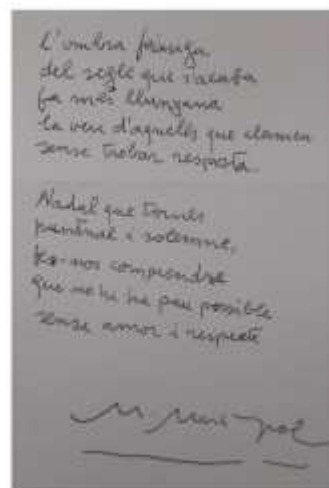 L'ombra feixuga
del segle que s'acaba
fa més llunyana
la veu d'aquells que clamen
sense trobar resposta.
Nadal que tornes
puntual i solemne,
fes-nos comprendre
que no hi ha pau possible
sense amor i respecte
M. Martí i Pol